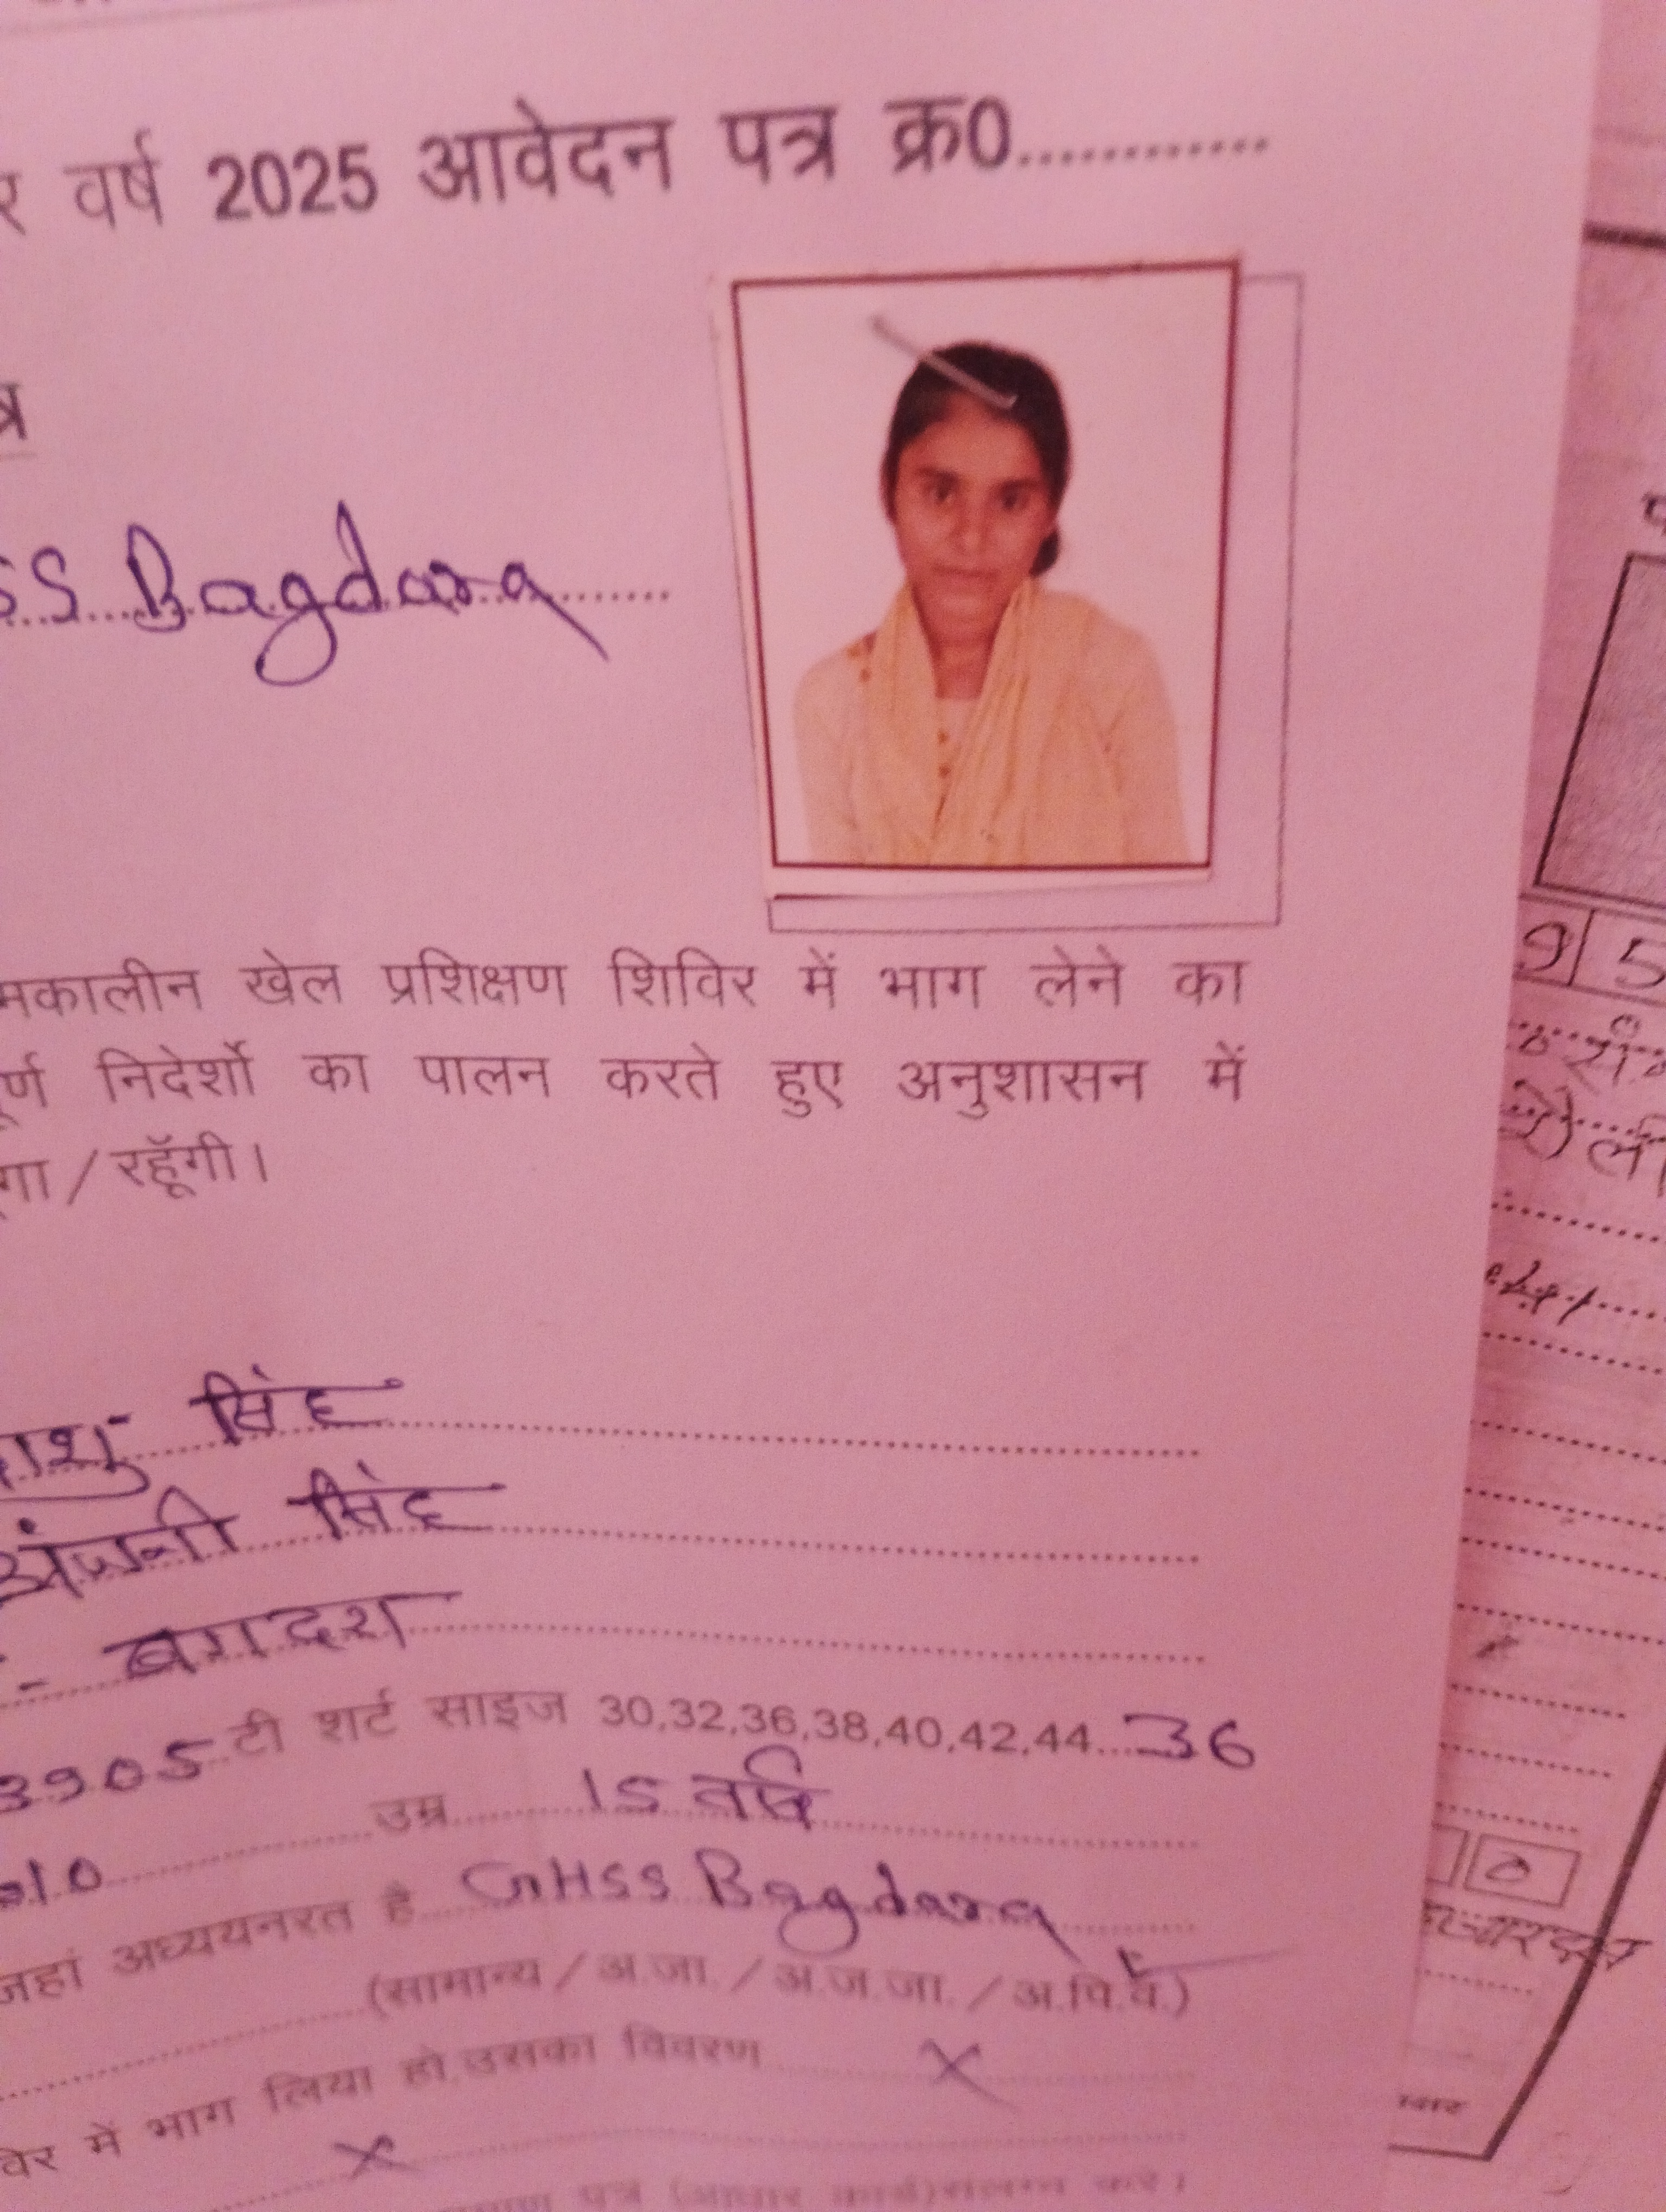 र वर्ष 2025 आवेदन पत्र क्र0............
त्र
SS Bagdara
मकालीन खेल प्रशिक्षण शिविर में भाग लेने का
र्ण निदेर्शो का पालन करते हुए अनुशासन में
गा / रहूॅगी।
सिंह
अंजनी सिंह
- बगदरा
3905 टी शर्ट साइज 30,32,36,38,40,42,44...36
उम्र 15 वर्ष
जहां अध्ययनरत है GHSS Bagdara
(सामान्य / अ.जा. / अ.ज.जा. / अ.पि.व.)
में भाग लिया हो,उसका विवरण X
X
पत्र (आधार कार्ड)संलग्न करे।
9 5
0